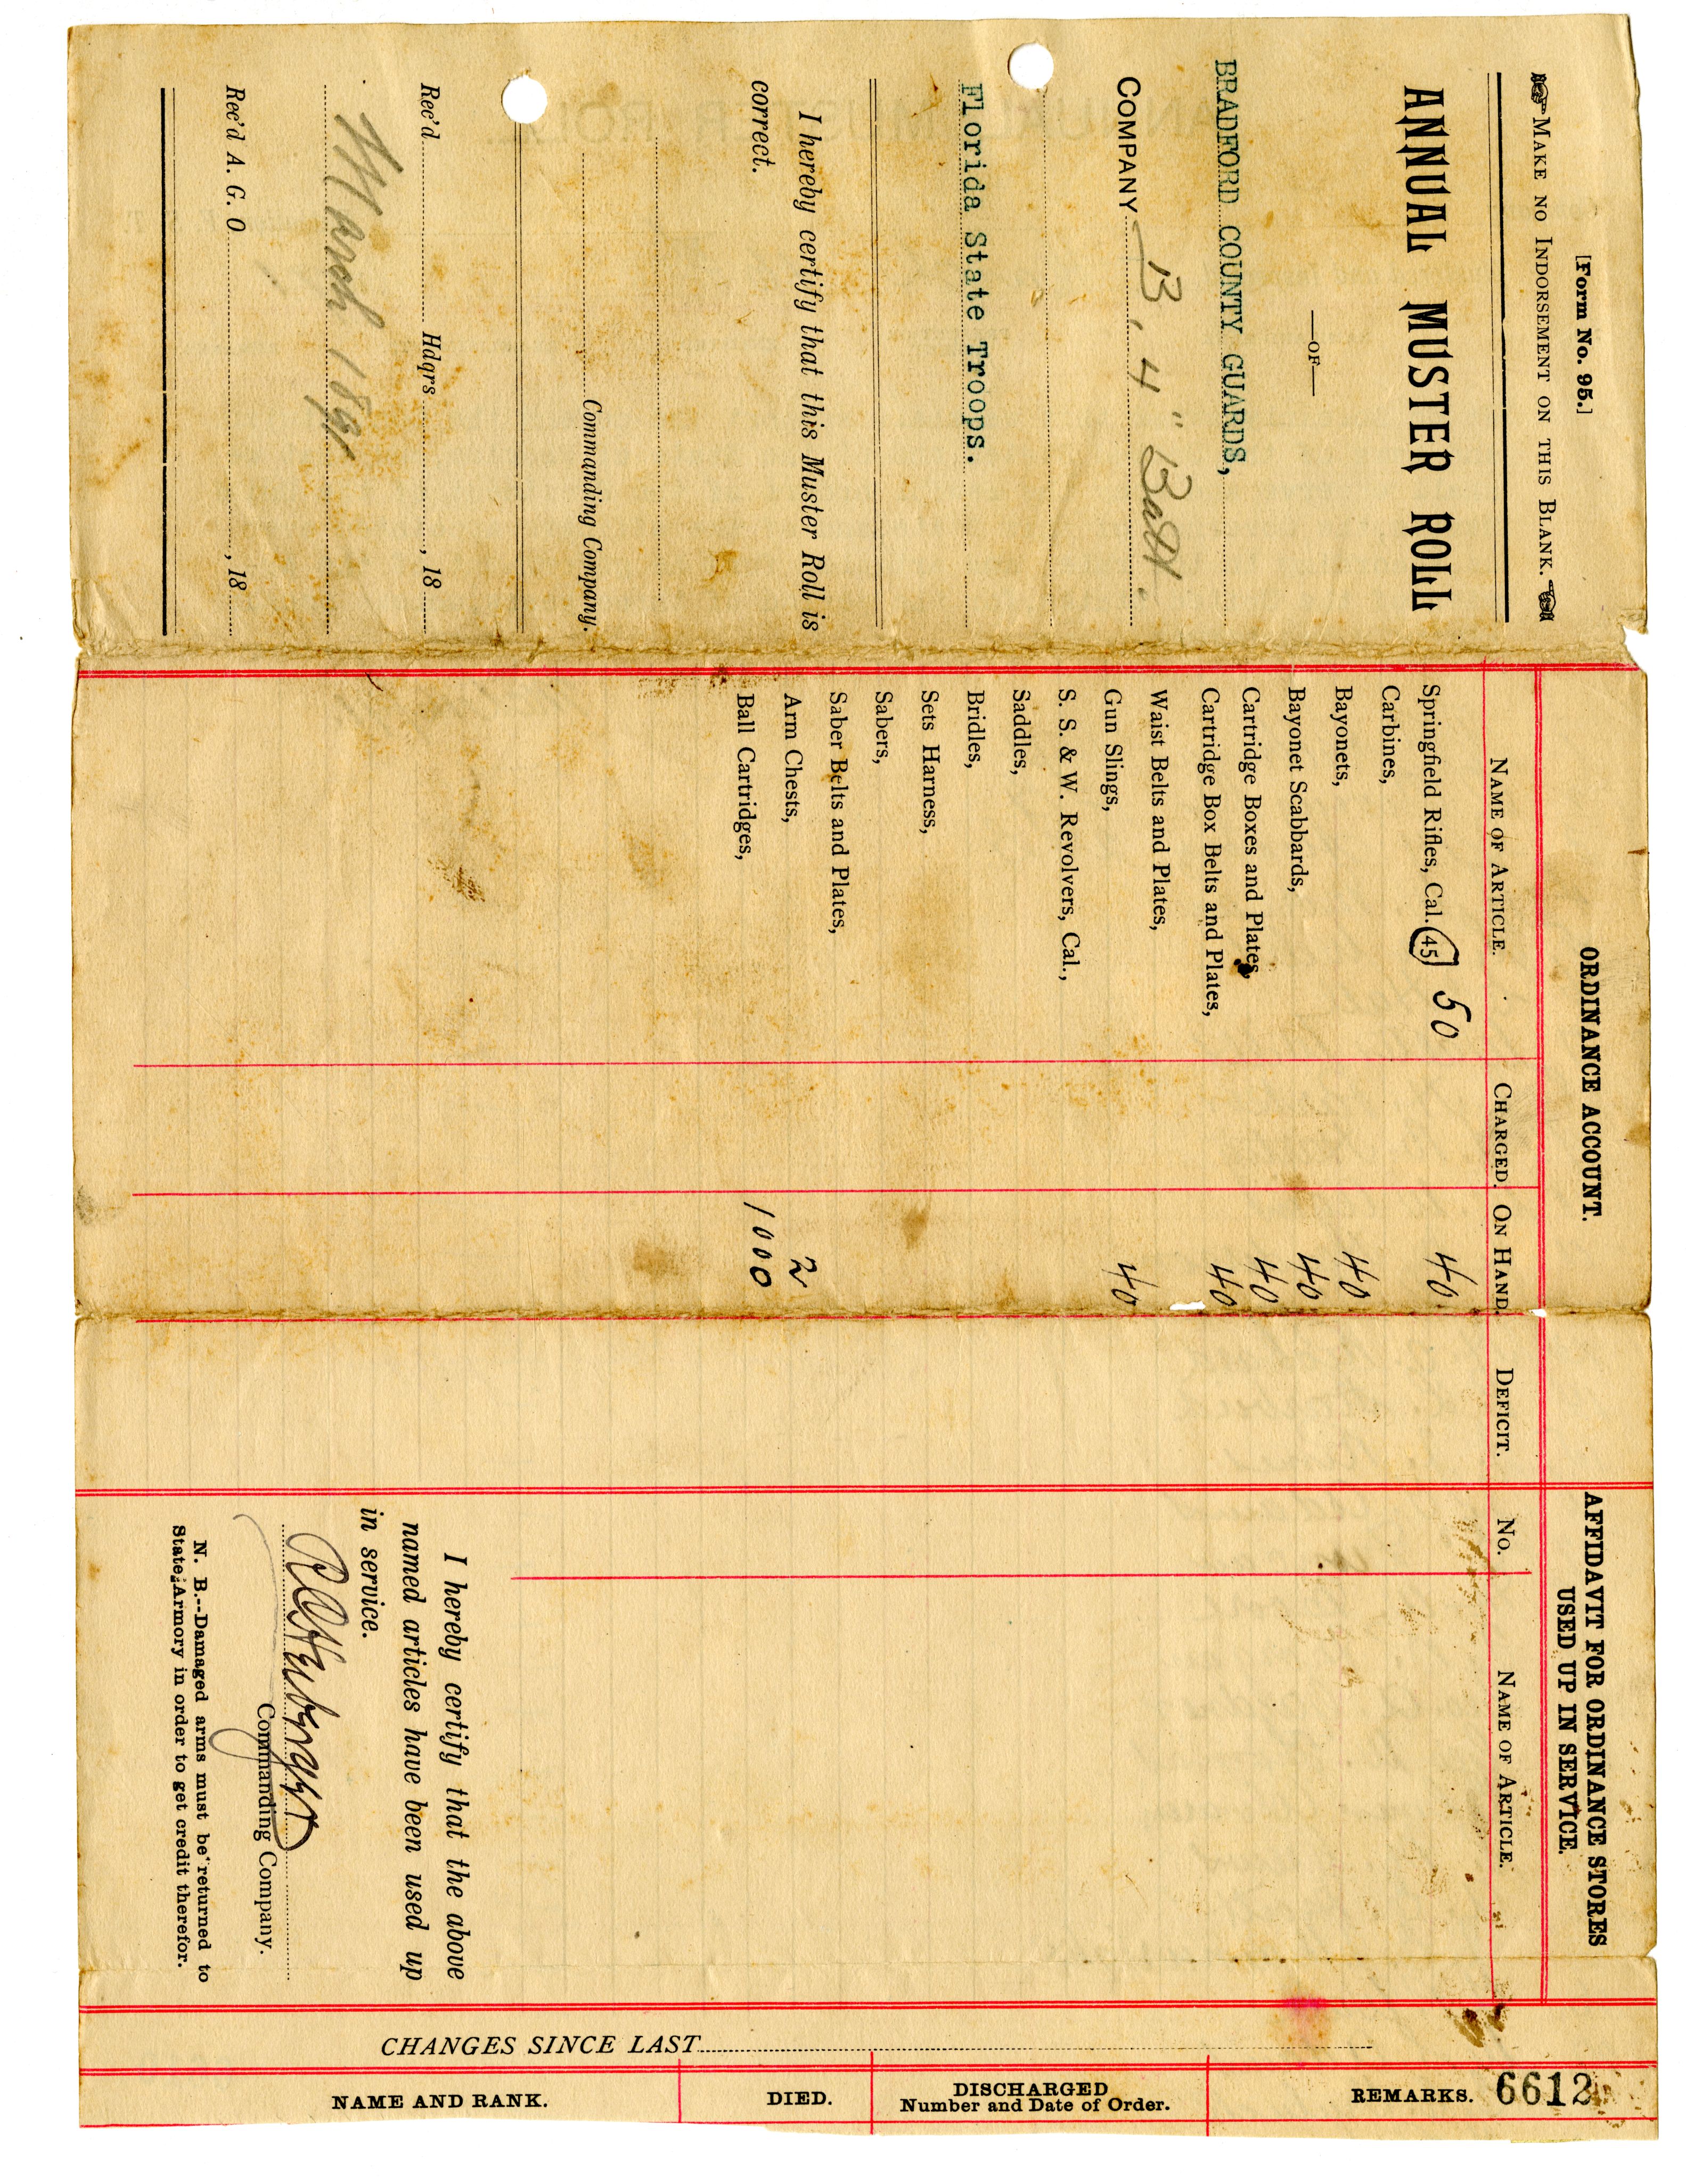 [Form No. 95.]
MAKE NO INDORSEMENT ON THIS BLANK.
ANNUAL MUSTER ROLL
—OF—
BRADFORD COUNTY GUARDS,
COMPANY B, 4" Batt.
Florida State Troops.
I hereby certify that this Muster Roll is
correct.
Commanding Company.
Rec'd Hdqrs , 18
March 1891
Rec'd A. G. O. , 18
ORDINANCE ACCOUNT.
NAME OF ARTICLE. CHARGED. ON HAND. DEFICIT.
Springfield Rifles, Cal. 45 50 40
Carbines,
Bayonets, 40
Bayonet Scabbards, 40
Cartridge Boxes and Plates, 40
Cartridge Box Belts and Plates, 40
Waist Belts and Plates,
Gun Slings, 40
S. S. & W. Revolvers, Cal.,
Saddles,
Bridles,
Sets Harness,
Sabers,
Saber Belts and Plates,
Arm Chests, 2
Ball Cartridges, 1000
AFFIDAVIT FOR ORDINANCE STORES
USED UP IN SERVICE.
No. NAME OF ARTICLE.
I hereby certify that the above
named articles have been used up
in service.
Commanding Company.
N. B.--Damaged arms must be returned to
State Armory in order to get credit therefor.
CHANGES SINCE LAST
NAME AND RANK. DIED. DISCHARGED REMARKS.
Number and Date of Order.
6612